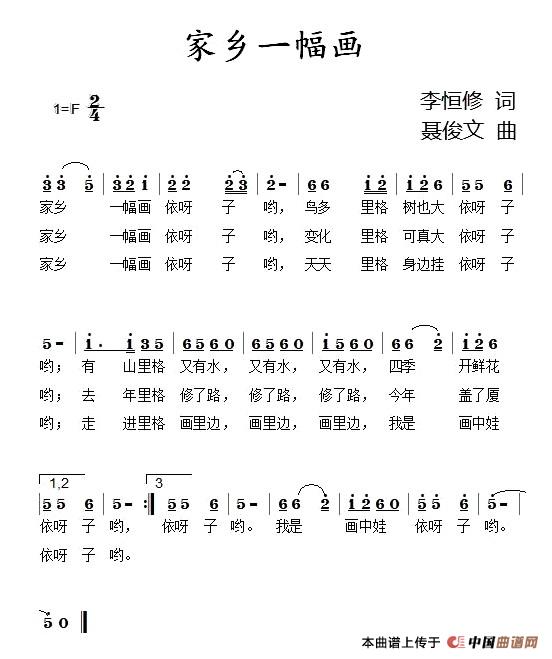 家乡一幅画
1=F 2/4
李恒修 词
聂俊文 曲
3 3 5 3 2 1 2 2 2 3 2 - 6 6 1 2 1 2 6 5 5 6
家乡 一幅画 依呀 子 哟，鸟多 里格 树也大 依呀 子
家乡 一幅画 依呀 子 哟，变化 里格 可真大 依呀 子
家乡 一幅画 依呀 子 哟，天天 里格 身边挂 依呀 子
5 - 1 . 1 3 5 6 5 6 0 6 5 6 0 1 5 6 0 6 6 2 1 2 6
哟；有 山里格 又有水，又有水，又有水，四季 开鲜花
哟；去 年里格 修了路，修了路，修了路，今年 盖了厦
哟；走 进里格 画里边，画里边，画里边，我是 画中娃
1,2 3
5 5 6 5 - :|| 5 5 6 5 - 6 6 2 1 2 6 0 5 5 6 5 -
依呀 子 哟，依呀 子 哟。我是 画中娃 依呀 子 哟。
依呀 子 哟。
5 0
本曲谱上传于 中国曲谱网